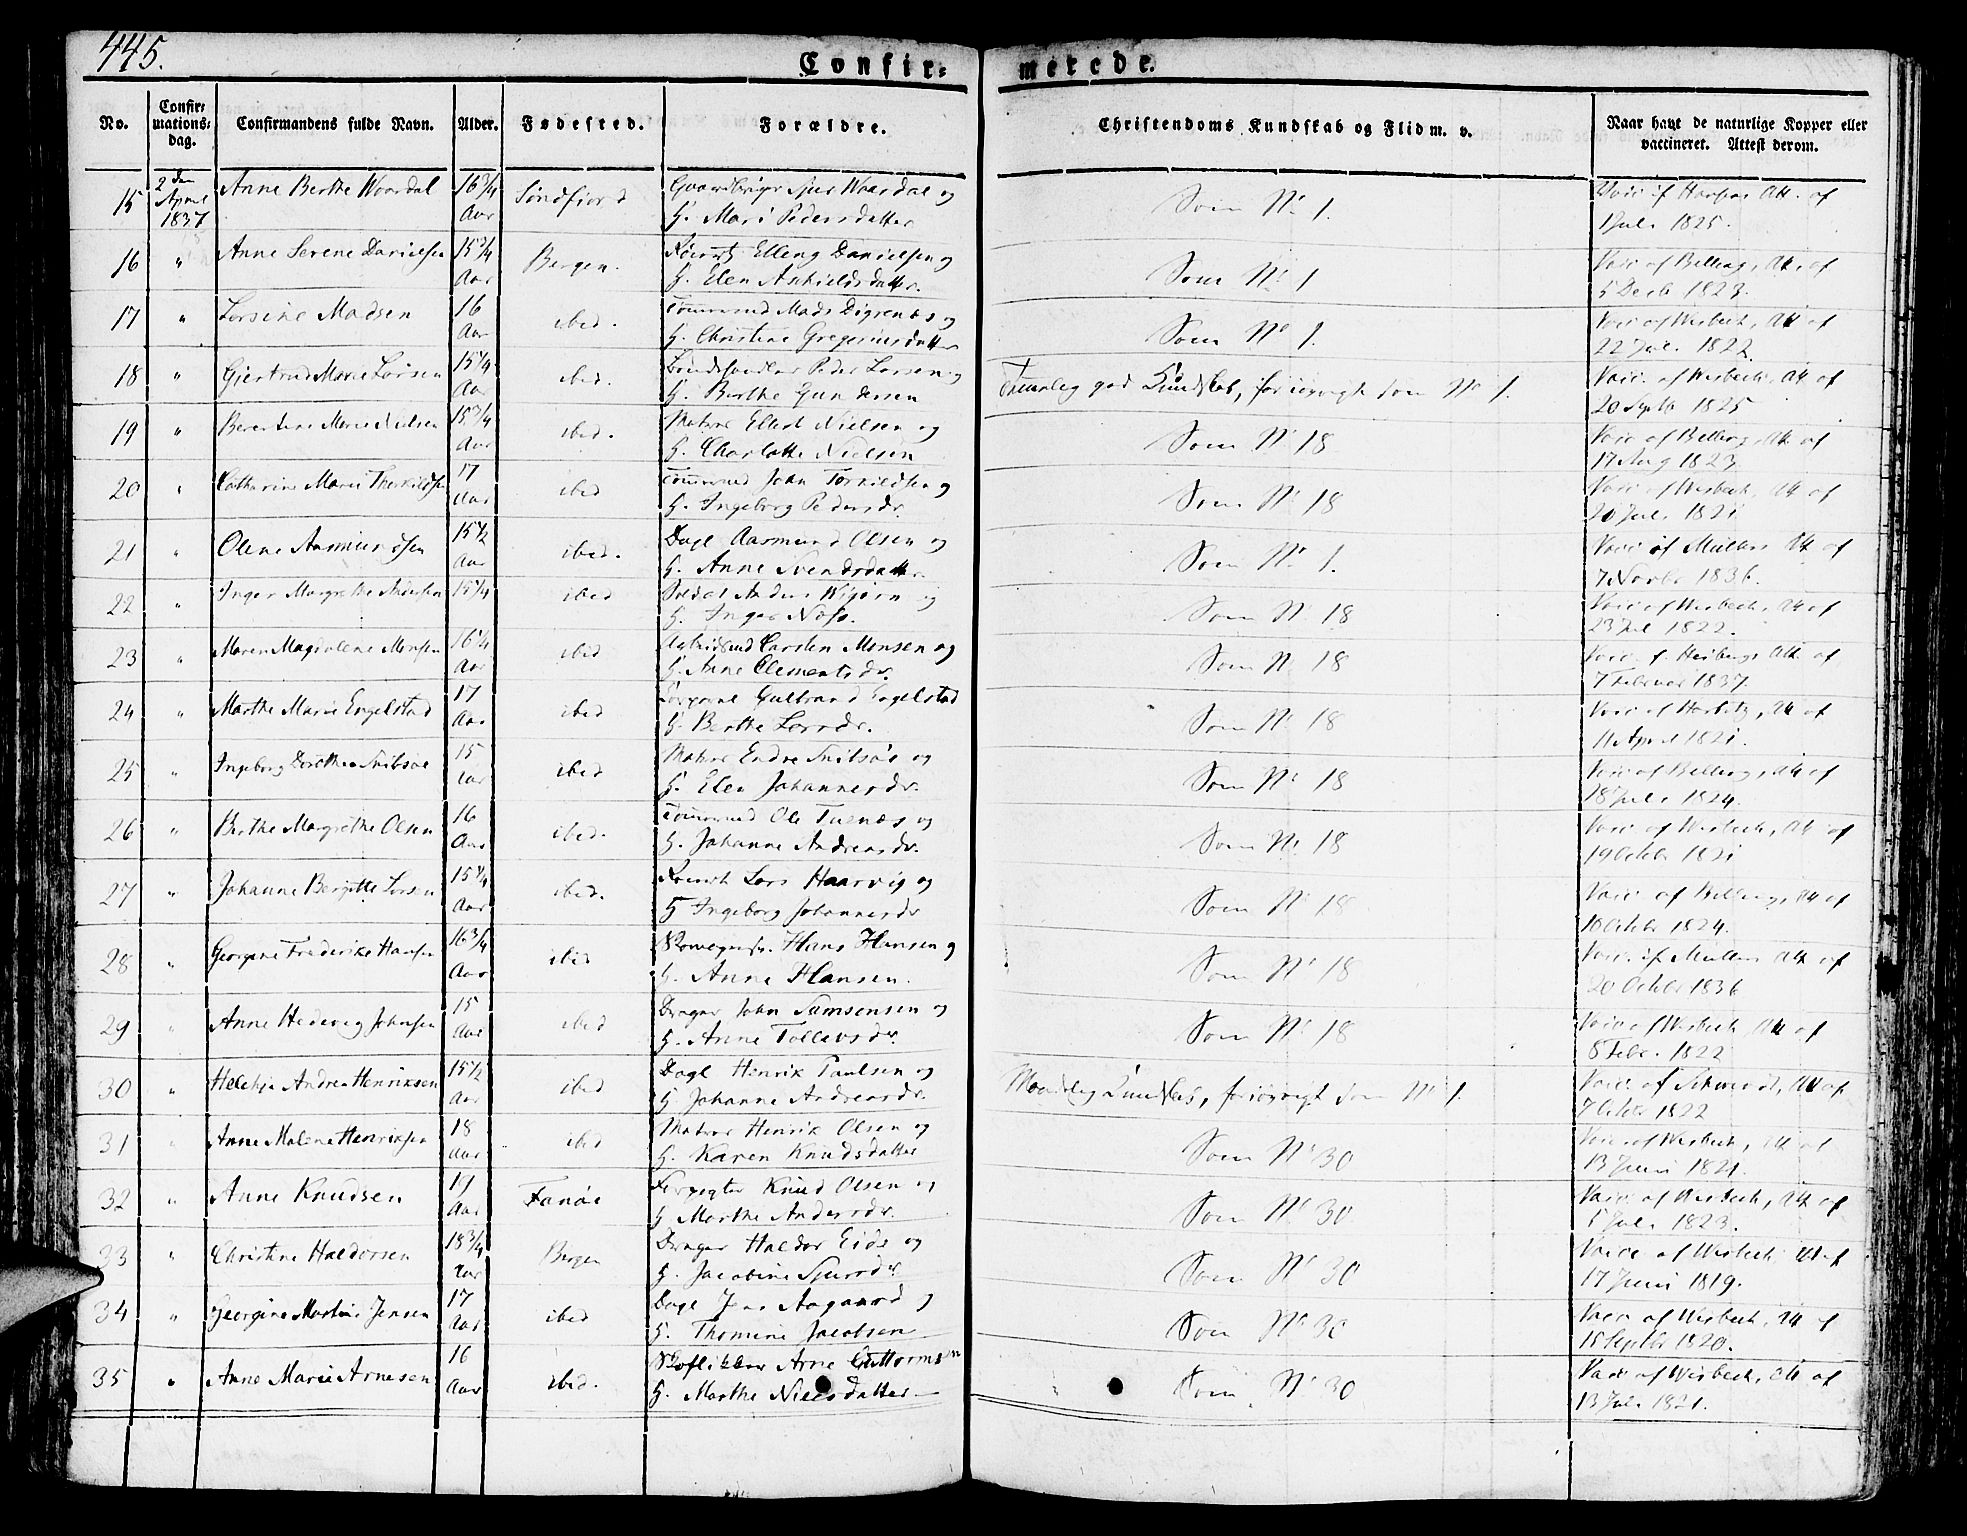 445.
Confir-
merede.
No.
Confir-
mations-
dag.
Confirmandens fulde Navn.
Alder.
Fødested.
Forældre.
Christendoms Kundskab og Flid m. v.
Naar havt de naturlige Kopper eller
vaccineret. Attest derom.
15 2den April 1837 Anne Berthe Waardal 16 3/4 Aar Søndfiord
Sjur Waardal og
H. Mari Pedersdatter
Som No 1.
Vacc. af Att. af
Juli 1825.
16 " Anne Serene Danielsen 15 3/4 Aar Bergen.
Elleng Danielsen og
H. Elen
Som No 1
Vacc af Belling, Att. af
5 Decb 1823.
17 " Madsen 16 Aar ibed.
Tømmermd Mads Digrenæs og
H. Christine Gregoriusdatter
Som No 1.
Vacc af Wisbech, Att af
22 Juli 1822.
18 " Giertrud Marie Larsen 15 1/4 Aar ibed.
Peder Larsen og
H. Berthe Gundersen
Temelig god Kundskab, forøvrigt som No 1.
Vacc. af Wisbech, Att af
20 Septb 1825
19 " Marie Nielsen 15 3/4 Aar ibed.
Matros Nielsen og
H. Charlotte Nielsen
Som No 18
Vacc af Belling, Att af
17 Aug 1823
20 " Catharine Marie Therkildsen 17 Aar ibed
Tømmermd John Torkildsen og
H. Ingeborg Pedersdr.
Som No 18
Vacc af Wisbech, Att af
20 Juli 1821
21 " Olene Aasmundsen 15 1/2 Aar ibed.
Dagl Aasmund Olsen og
H. Anne Svendsdatter
Som No 1.
Vacc af Müller Att af
7 Novbr 1836.
22 " Inger Margrethe Andersen 15 1/4 ibed
Soldat Anders og
H. Inger Næss.
Som No 18
Vacc af Wisbech, Att af
23 Jul 1822.
23 " Maren Magdalene Monsen 16 1/4 Aar ibed
Carsten Monsen og
H. Anne Clementsdr.
Som No 18
Vacc. f. Heiberg, Att. af
7 Februar 1837.
24 " Marthe Marie Engelstad 17 Aar ibed
Gulbrand Engelstad
H. Berthe Larsdr.
Som No 18
Vacc af Att af
11 April 1821.
25 " Ingeborg Dorothea 15 Aar ibed
Matros Endre og
H. Elen Johannesdr.
Som No 18
Vacc af Belling, Att af
18 Juli 1824.
26 " Berthe Margrethe Olsen 16 Aar ibed.
Tømmermd Ole Tuenæs og
H. Johanne Andreasdr.
Som No 18
Vacc af Wisbech, Att af
19 Octbr 1821
27 " Johanne Bergitte Larsen 15 3/4 Aar ibed.
Lars Haarvig og
H Ingeborg Johannesdr
Som No 18
Vacc. af Belling, Att af
10 Octbr 1824.
28 " Georgine Frederike Hansen 16 3/4 Aar ibid
Hans Hansen og
H. Anne Hansen.
Som No 18
Vacc. af Müller Att af
20 Octbr 1836
29 " Anne Hedevig Johnsen 15 Aar ibed
Drager John Samsonsen og
H. Anne Tollevsdr.
Som No 18
Vacc af Wisbech Att af
8 Febr. 1822
30 " Andrea Henriksen 15 1/2 Aar ibed
Dagl Henrik Paulsen og
H. Johanne Andreasdr.
Maadelig Kundskab, forøvrigt som No 1.
Vacc. af Att af
7 Octbr 1822
31 " Anne Malene Henriksen 18 Aar ibed
Matros Henrik Olsen og
H. Karen Knudsdatter
Som No 30
Vacc. af Wisbech, Att af
13 Juni 1821.
32 " Anne Knudsen 19 Aar Fanøe
Knud Olsen og
H Marthe Andersdr.
Som No 30
Vacc af Wisbech, Att af
5 Juli 1823.
33 " Christine Haldorsen 18 3/4 Aar Bergen
Drager Haldor Eide og
H. Jacobine Sjursdr.
Som No 30
Vacc af Wisbech Att af
17 Juni 1819.
34 " Georgine Martine Jensen 17 Aar ibed
Dagl Jens Aagaard og
H. Thomine Jacobsen
Som No 30
Vacc af Wisbech, Att af
18 Septbr 1820.
35 " Anne Marie Arnesen 16 Aar ibed.
Skoflikker Arne Guttormsen
H. Marthe Nielsdatter
Som No 30
Vacc af Wisbech, Att af
13 Juli 1821.